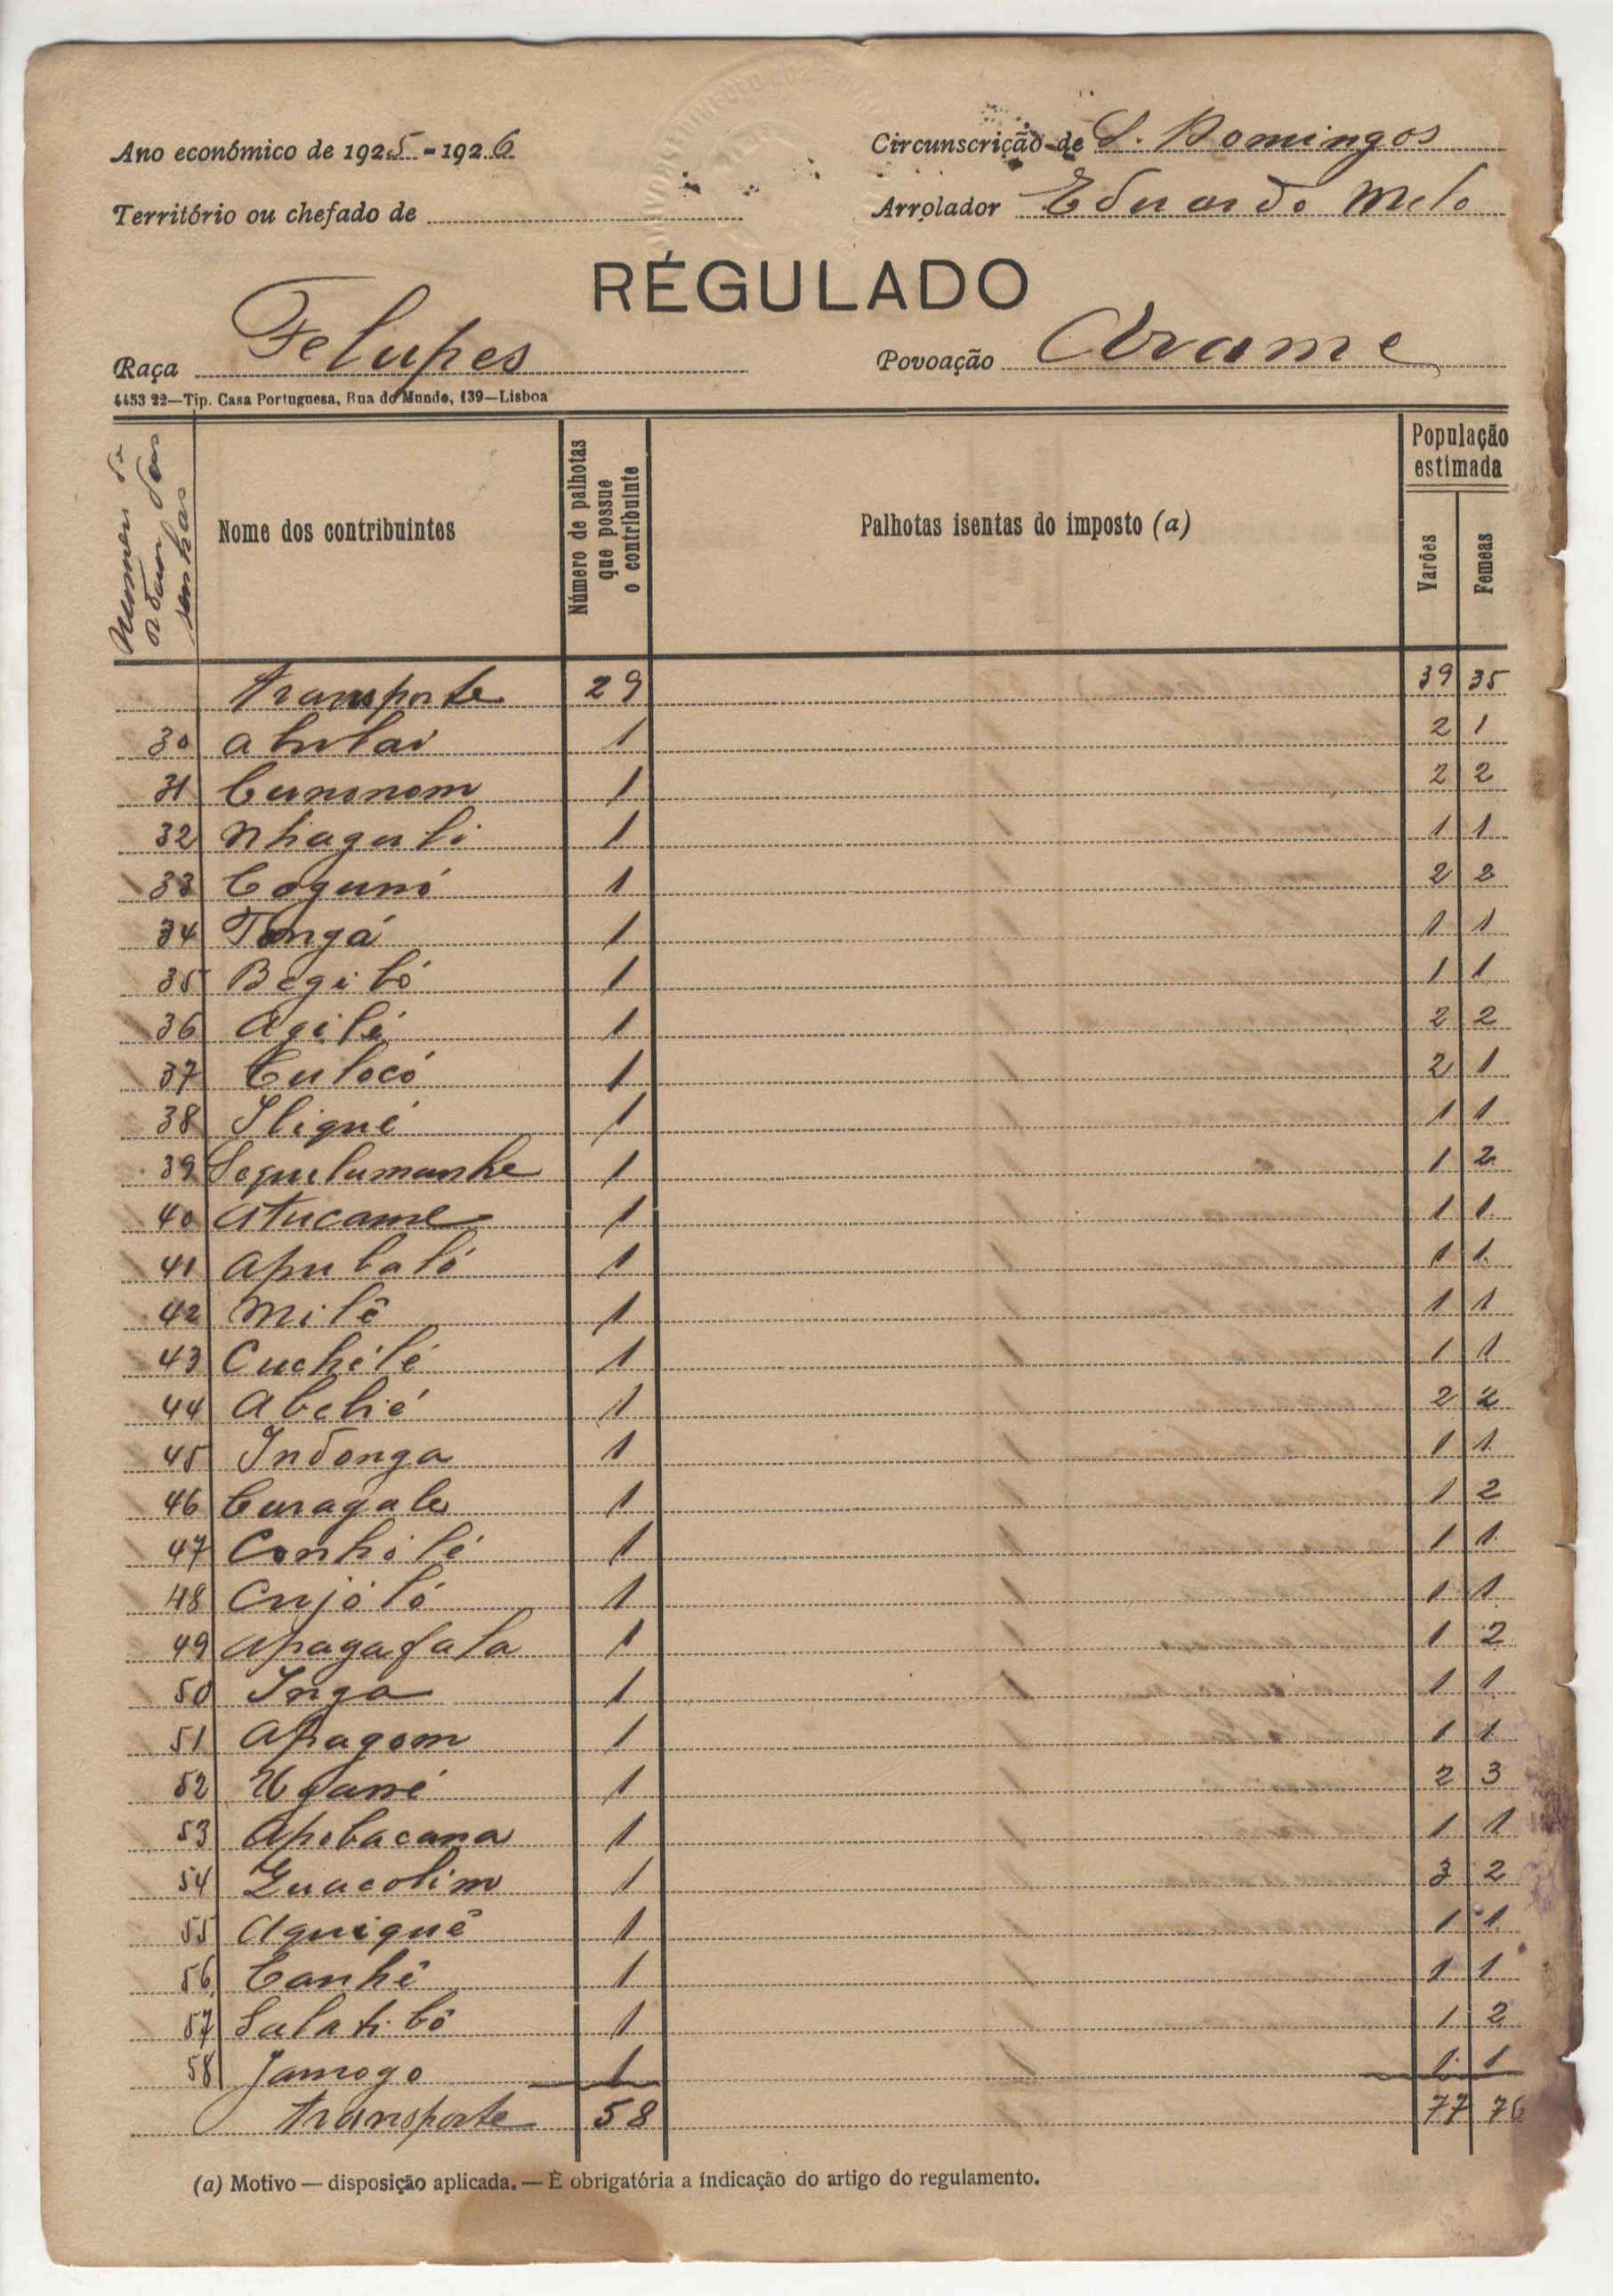 Ano económico de 1925-1926
Circunscrição de S. Domingos
Território ou chefado de
Arrolador Eduardo Melo
RÉGULADO
Raça Felupes
Povoação Arame
4453 22—Tip. Casa Portuguesa, Rua do Mundo, 139—Lisboa
Numeros de ordem das senhas
Nome dos contribuintes
Número de palhotas que possue o contribuinte
Palhotas isentas do imposto (a)
População estimada
Varões
Femeas
Transporte 29 39 35
30 1 2 1
31 Cunonom 1 2 2
32 Nhaguli 1 1 1
33 Cogunó 1 2 2
34 Tongá 1 1 1
35 Begibó 1 1 1
36 Agilé 1 2 2
37 Culocó 1 2 1
38 Iligué 1 1 1
39 Sequelumanhe 1 1 2
40 Atucame 1 1 1
41 Apubaló 1 1 1
42 Milê 1 1 1
43 Cuchélé 1 1 1
44 Abehié 1 2 2
45 Indonga 1 1 1
46 1 1 2
47 Conhilé 1 1 1
48 Cujóló 1 1 1
49 Apagafala 1 1 2
50 Inga 1 1 1
51 Apagom 1 1 1
52 1 2 3
53 Apobacana 1 1 1
54 Guacolim 1 3 2
55 Aquiquê 1 1 1
56 Canhê 1 1 1
57 Salatibô 1 1 2
58 Jamogo 1 1 1
Transporte 58 77 76
(a) Motivo — disposição aplicada. — É obrigatória a indicação do artigo do regulamento.